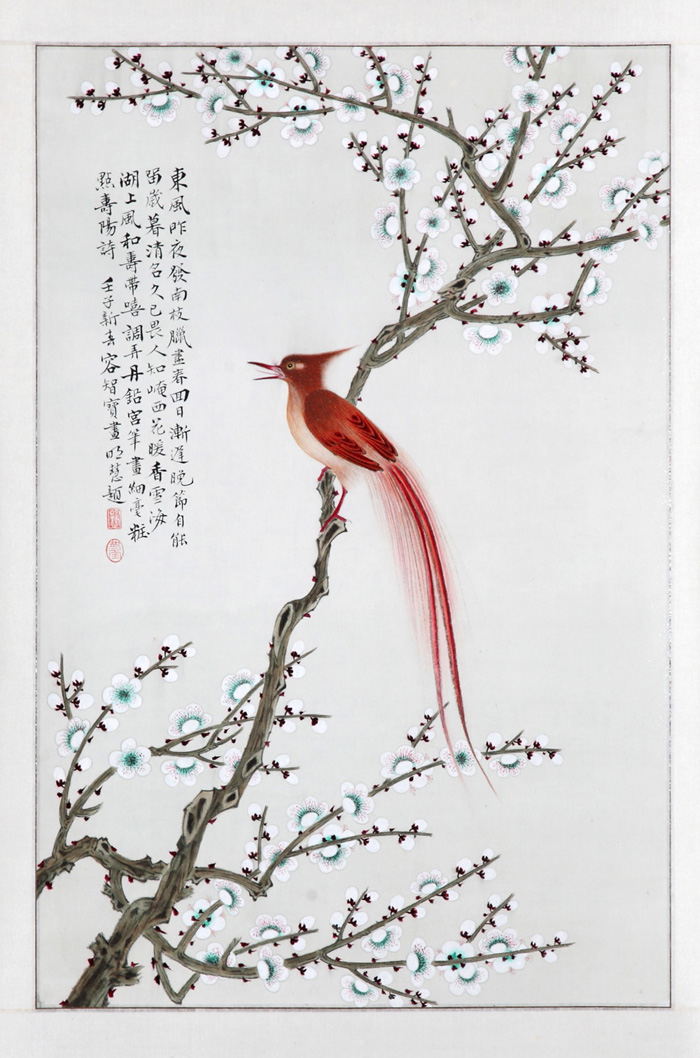 東風昨夜發南枝臘盡春回日漸遲晚節自能
留歲暮清名久已畏人知崦西花暖香雪海
湖上風和壽帶嘻調弄丹鉛宮筆畫細毫粧
點壽陽詩 壬子新春容智寶畫明慧題